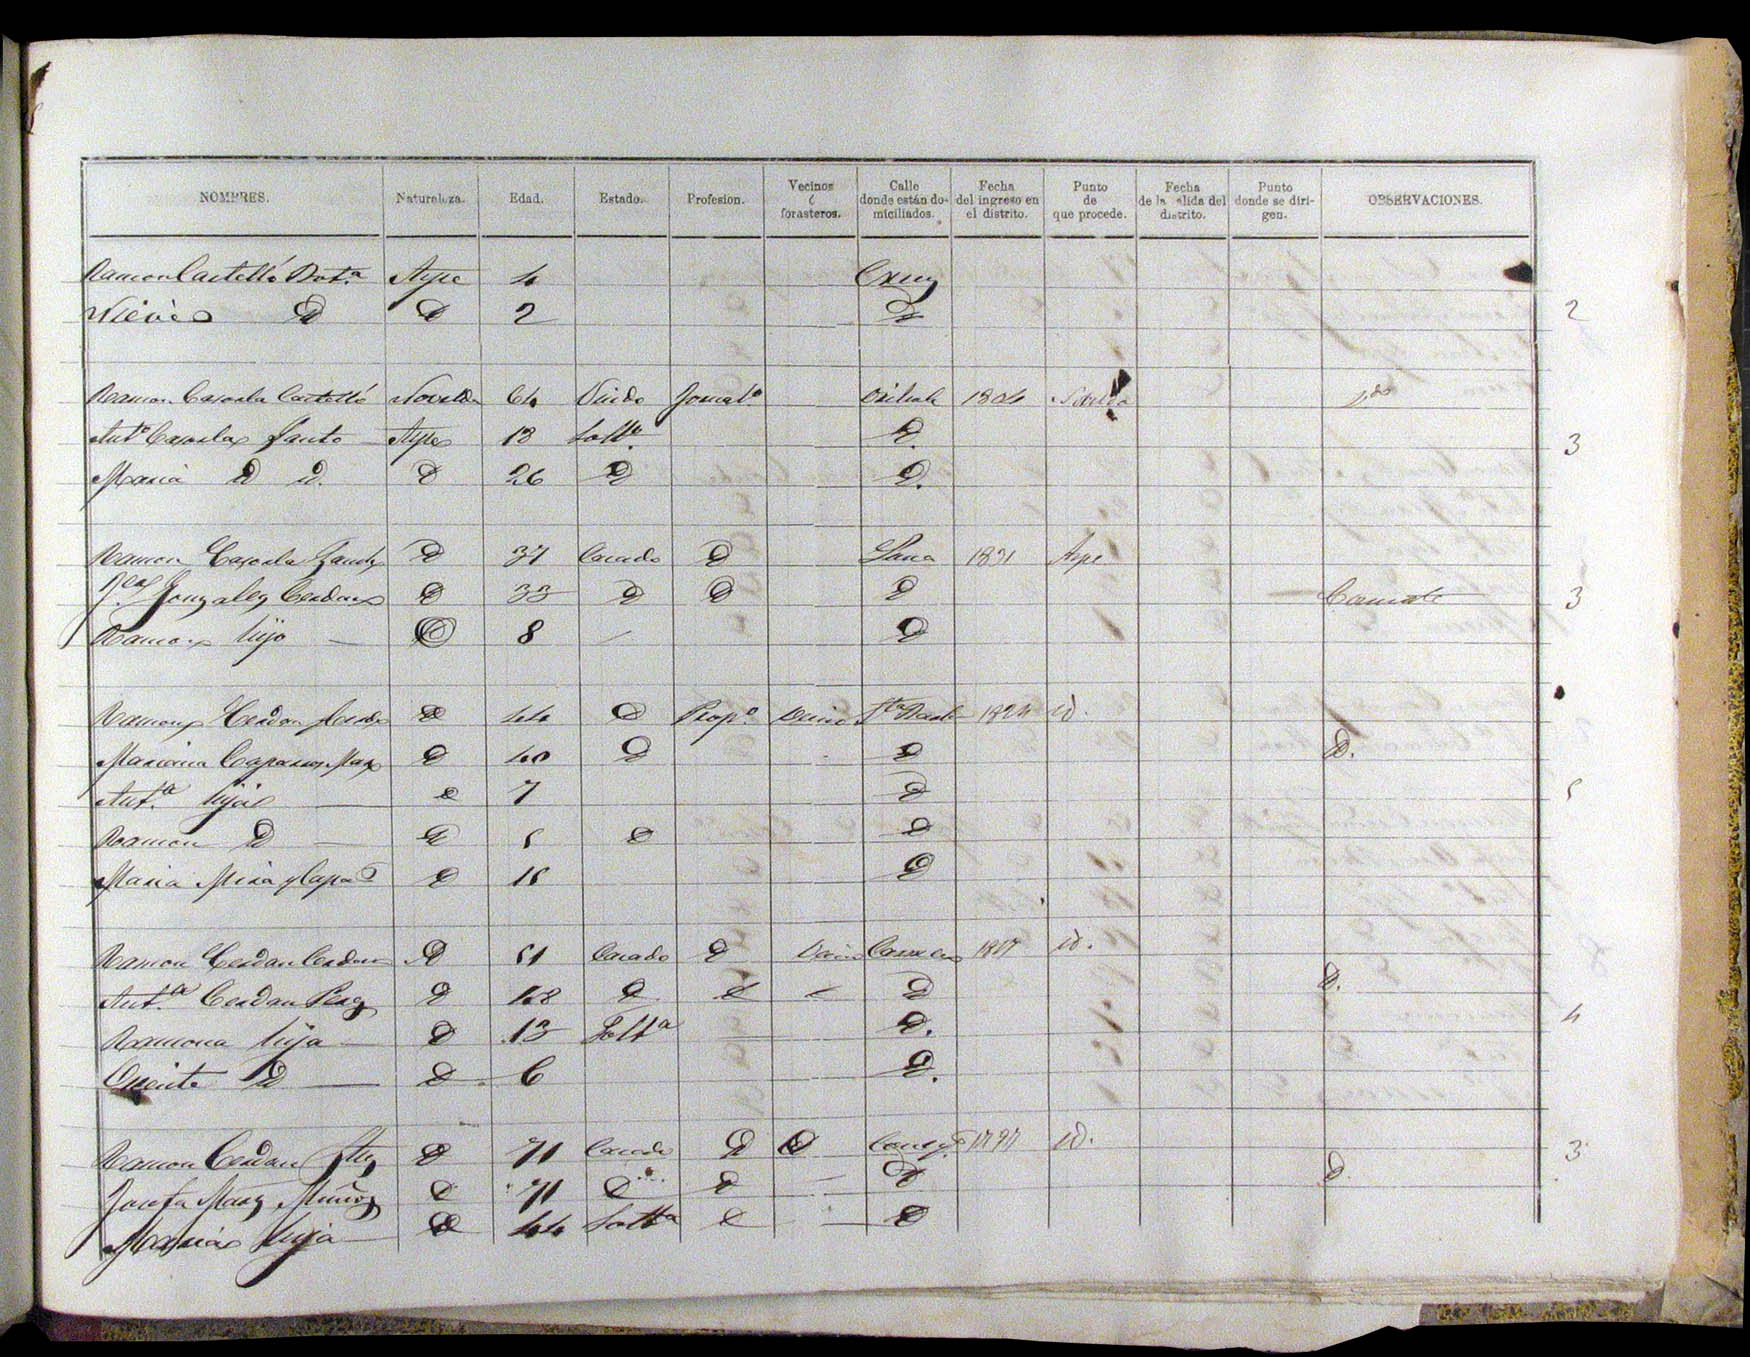 NOMBRES. Naturaleza. Edad. Estado. Profesion. Vecinos ó forasteros. Calle donde están domiciliados. Fecha del ingreso en el distrito. Punto de que procede. Fecha de la salida del distrito. Punto donde se dirigen. OBSERVACIONES.
Ramon Castelló Bot.ª Aspe 4 Cruz
Nieves D D 2 D 2
Ramon Cazorla Castelló Novelda 64 Viudo Jornal.º 1804 Novelda
Ant.º Cazorla Aspe 18 Solt.º D. 3
Maria D D. D 26 D D.
Ramon Cazorla D 37 Casado D 1831 Aspe
Gonzalez Cerdan D 33 D D D 3
Ramon hijo — D 8 D
Ramon Cerdan D 44 D Prop.º Vecino 1824 id.
Mariana D 40 D D D.
Ant.ª hija — D 7 D 5
Ramon D — D 5 D D
Maria Mira y D 15 D
Ramon Cerdan Cerdan D 51 Casado D Vecino 1807 id.
Ant.ª Cerdan Perez D 48 D D D.
Ramona hija — D 13 Solt.ª D. 4
Vicente D — D 6 D.
Ramon Cerdan D 71 Casado D D 1797 id. 3
Josefa Muñoz D 71 D D D D.
Maria hija — D 44 Solt.ª D